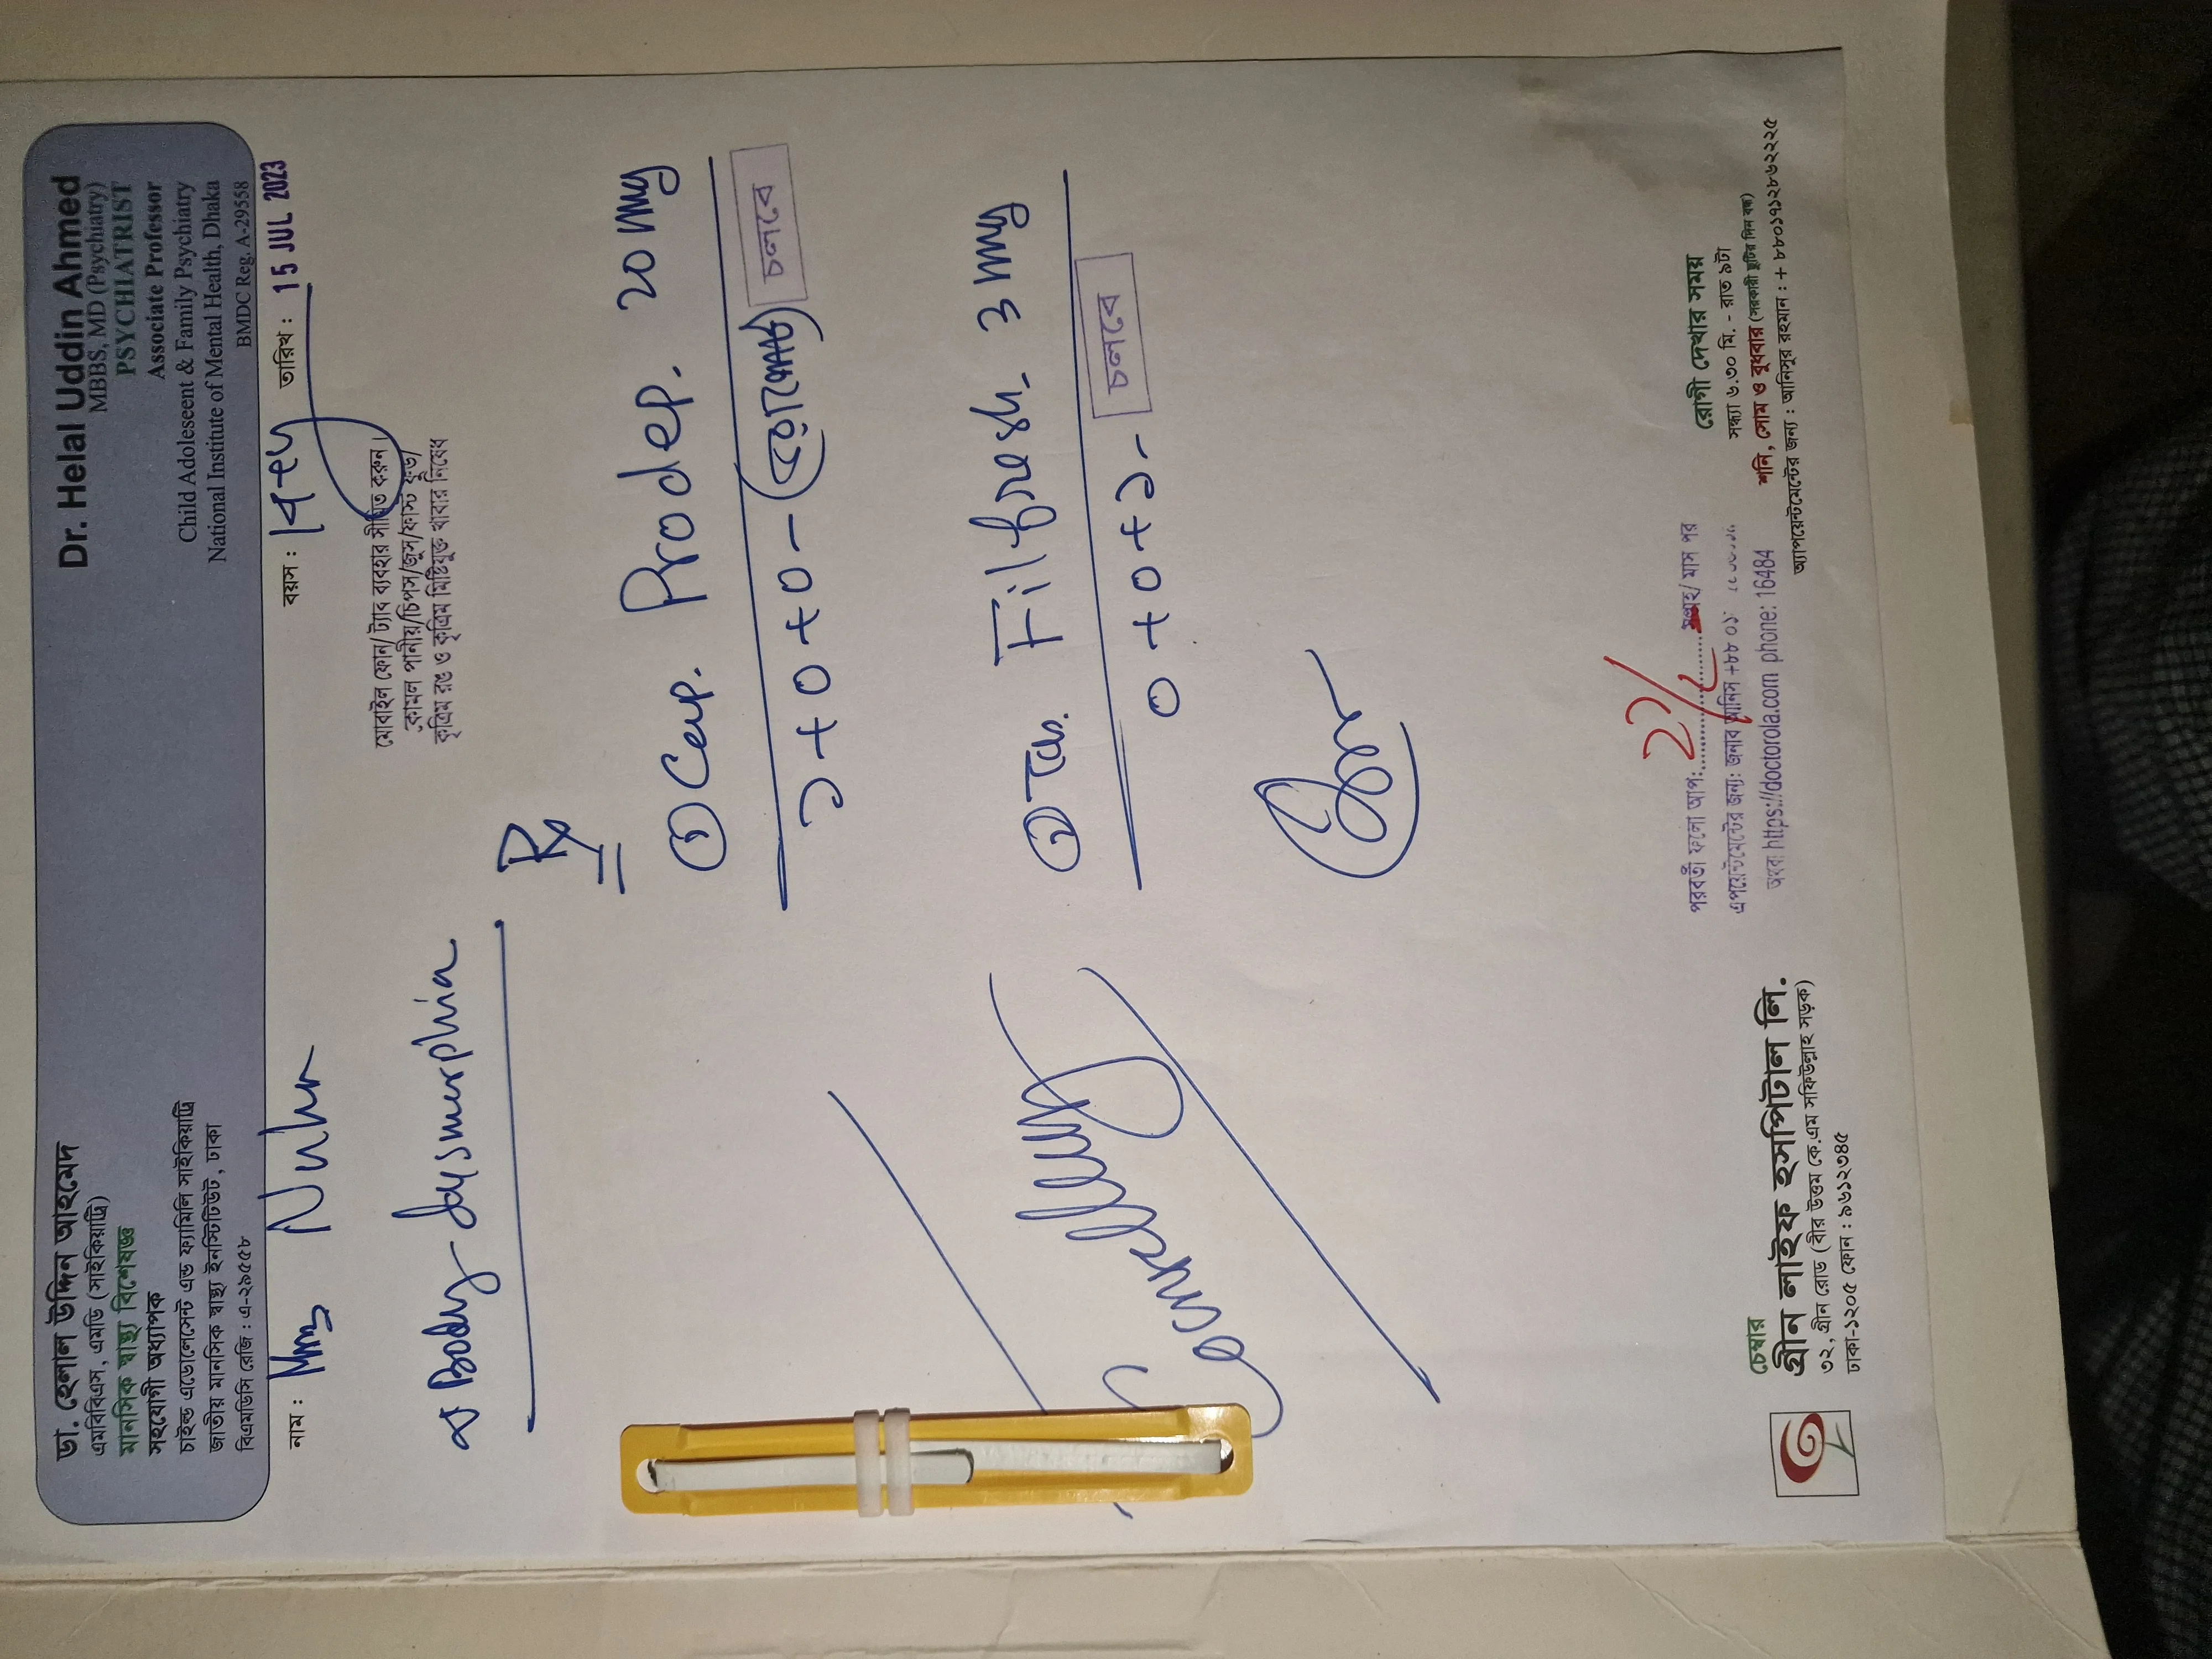 ডা. হেলাল উদ্দিন আহমেদ
এমবিবিএস, এমডি (সাইকিয়াট্রি)
মানসিক স্বাস্থ্য বিশেষজ্ঞ
সহযোগী অধ্যাপক
চাইল্ড এডোলেসেন্ট এন্ড ফ্যামিলি সাইকিয়াট্রি
জাতীয় মানসিক স্বাস্থ্য ইনস্টিটিউট, ঢাকা
বিএমডিসি রেজি : এ-২৯৫৫৮
Dr. Helal Uddin Ahmed
MBBS, MD (Psychiatry)
PSYCHIATRIST
Associate Professor
Child Adoleseent & Family Psychiatry
National Institute of Mental Health, Dhaka
BMDC Reg. A-29558
নাম : Nuha বয়স : তারিখ : 15 JUL 2023
মোবাইল ফোন/ ট্যাব ব্যবহার সীমিত করুন।
কোমল পানীয়/চিপস/জুস/ফাস্ট ফুড/
কৃত্রিম রঙ ও কৃত্রিম মিষ্টিযুক্ত খাবার নিষেধ
Body dysmorphia
Rx
① Cap. Prodep. 20 mg
১+০+০ - চলবে
② Tab. Filfresh. 3 mg
০+০+১ - চলবে
Counselling
পরবর্তী ফলো আপ: মাস পর
এপয়েন্টমেন্টের জন্য: জনাব আনিস +৮৮ ০১
অথবা https://doctorola.com phone: 16484
চেম্বার
গ্রীন লাইফ হসপিটাল লি.
৩২, গ্রীন রোড (বীর উত্তম কে.এম সফিউল্লাহ সড়ক)
ঢাকা-১২০৫ ফোন : ৯৬১২৩৪৫
রোগী দেখার সময়
সন্ধ্যা ৬.৩০ মি. - রাত ৯টা
শনি, সোম ও বুধবার (সরকারী ছুটির দিন বন্ধ)
অ্যাপয়েন্টমেন্টের জন্য : আনিসুর রহমান : + ৮৮০১৭১২৮৬২২২৫